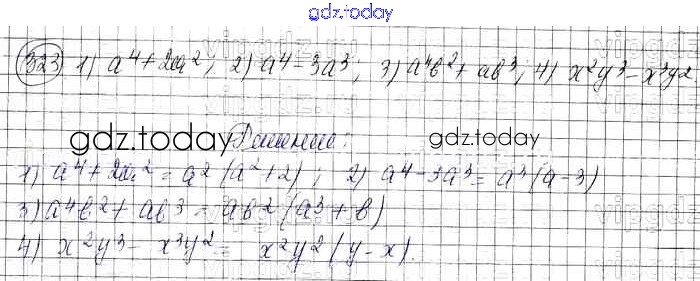 gdz.today
323 1) a⁴+2a²; 2) a⁴-3a³; 3) a⁴b²+ab³; 4) x²y³-x³y²
gdz.today Решение: gdz.today
1) a⁴+2a² = a²(a²+2); 2) a⁴-3a³ = a³(a-3)
3) a⁴b²+ab³ = ab²(a³+b)
4) x²y³-x³y² = x²y²(y-x).